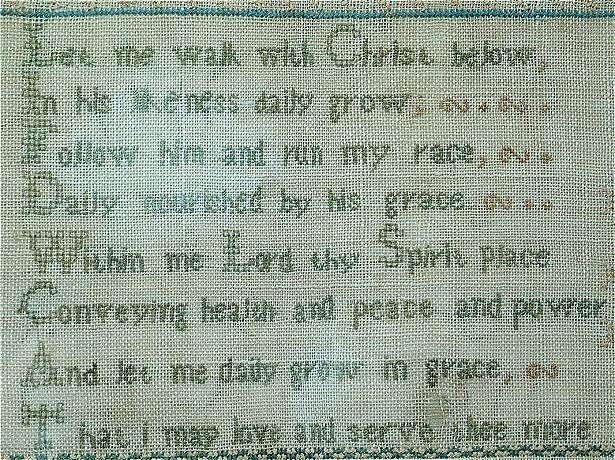 Let me walk with Christ below,
In his likeness daily grow,
Follow him and run my race,
Daily nourished by his grace
Within me Lord thy Spirit place
Conveying health and peace and power
And let me daily grow in grace,
That I may love and serve thee more